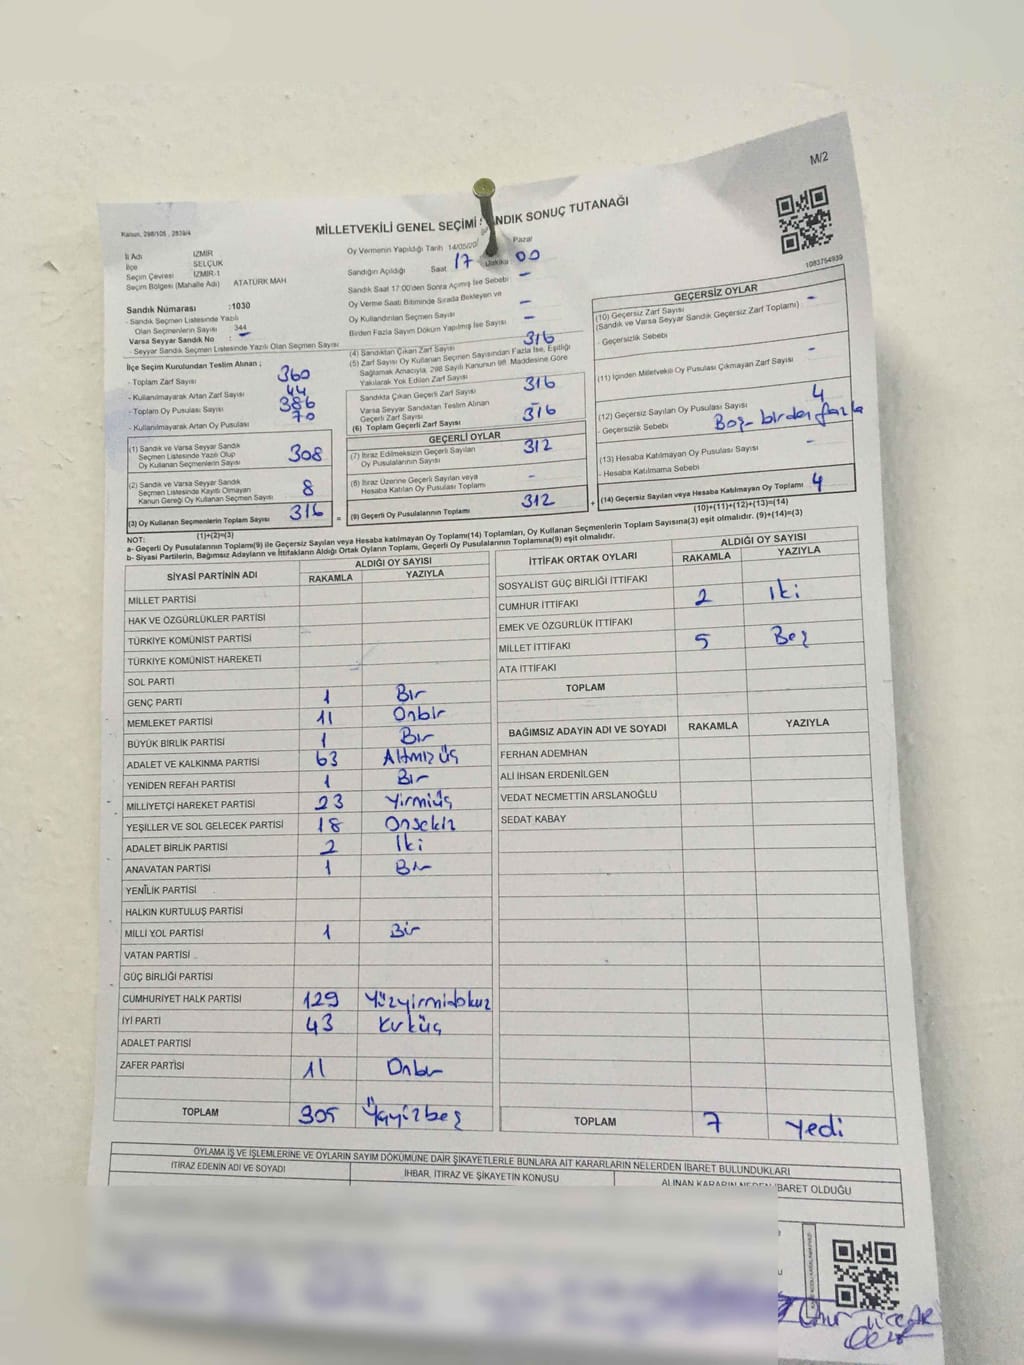 M/2
Kanun, 298/105 , 2839/4
MİLLETVEKİLİ GENEL SEÇİMİ SANDIK SONUÇ TUTANAĞI
1083754939
İl Adı İZMİR
İlçe SELÇUK
Seçim Çevresi İZMİR-1
Seçim Bölgesi (Mahalle Adı) ATATÜRK MAH
Sandık Numarası :1030
- Sandık Seçmen Listesinde Yazılı
Olan Seçmenlerin Sayısı 344
Varsa Seyyar Sandık No : -
- Seyyar Sandık Seçmen Listesinde Yazılı Olan Seçmen Sayısı
İlçe Seçim Kurulundan Teslim Alınan ;
- Toplam Zarf Sayısı 360
- Kullanılmayarak Artan Zarf Sayısı 44
- Toplam Oy Pusulası Sayısı 386
- Kullanılmayarak Artan Oy Pusulası 70
(1) Sandık ve Varsa Seyyar Sandık
Seçmen Listesinde Yazılı Olup
Oy Kullanan Seçmenlerin Sayısı 308
(2) Sandık ve Varsa Seyyar Sandık
Seçmen Listesinde Kayıtlı Olmayan
Kanun Gereği Oy Kullanan Seçmen Sayısı 8
(3) Oy Kullanan Seçmenlerin Toplam Sayısı 316
(1)+(2)=(3)
Oy Vermenin Yapıldığı Tarih 14/05/20 Pazar
Sandığın Açıldığı Saat 17 Dakika 00
Sandık Saat 17:00'den Sonra Açımış İse Sebebi -
Oy Verme Saati Bitiminde Sırada Bekleyen ve
Oy Kullandırılan Seçmen Sayısı -
Birden Fazla Sayım Döküm Yapılmış İse Sayısı -
(4) Sandıktan Çıkan Zarf Sayısı 316
(5) Zarf Sayısı Oy Kullanan Seçmen Sayısından Fazla İse, Eşitliği
Sağlamak Amacıyla, 298 Sayılı Kanunun 98. Maddesine Göre
Yakılarak Yok Edilen Zarf Sayısı
Sandıkta Çıkan Geçerli Zarf Sayısı 316
Varsa Seyyar Sandıktan Teslim Alınan
Geçerli Zarf Sayısı -
(6) Toplam Geçerli Zarf Sayısı 316
GEÇERLİ OYLAR
(7) İtiraz Edilmeksizin Geçerli Sayılan
Oy Pusulalarının Sayısı 312
(8) İtiraz Üzerine Geçerli Sayılan veya
Hesaba Katılan Oy Pusulası Toplamı -
= (9) Geçerli Oy Pusulalarının Toplamı 312
GEÇERSİZ OYLAR
(10) Geçersiz Zarf Sayısı
(Sandık ve Varsa Seyyar Sandık Geçersiz Zarf Toplamı) -
- Geçersizlik Sebebi
(11) İçinden Milletvekili Oy Pusulası Çıkmayan Zarf Sayısı -
(12) Geçersiz Sayılan Oy Pusulası Sayısı 4
- Geçersizlik Sebebi Boş - birden fazla
(13) Hesaba Katılmayan Oy Pusulası Sayısı -
- Hesaba Katılmama Sebebi
+ (14) Geçersiz Sayılan veya Hesaba Katılmayan Oy Toplamı 4
(10)+(11)+(12)+(13)=(14)
NOT:
a- Geçerli Oy Pusulalarının Toplamı(9) ile Geçersiz Sayılan veya Hesaba katılmayan Oy Toplamı(14) Toplamları, Oy Kullanan Seçmenlerin Toplam Sayısına(3) eşit olmalıdır. (9)+(14)=(3)
b- Siyasi Partilerin, Bağımsız Adayların ve İttifakların Aldığı Ortak Oyların Toplamı, Geçerli Oy Pusulalarının Toplamına(9) eşit olmalıdır.
SİYASİ PARTİNİN ADI ALDIĞI OY SAYISI
RAKAMLA YAZIYLA
MİLLET PARTİSİ
HAK VE ÖZGÜRLÜKLER PARTİSİ
TÜRKİYE KOMÜNİST PARTİSİ
TÜRKİYE KOMÜNİST HAREKETİ
SOL PARTİ
GENÇ PARTİ 1 Bir
MEMLEKET PARTİSİ 11 Onbir
BÜYÜK BİRLİK PARTİSİ 1 Bir
ADALET VE KALKINMA PARTİSİ 63 Altmışüç
YENİDEN REFAH PARTİSİ 1 Bir
MİLLİYETÇİ HAREKET PARTİSİ 23 Yirmiüç
YEŞİLLER VE SOL GELECEK PARTİSİ 18 Onsekiz
ADALET BİRLİK PARTİSİ 2 İki
ANAVATAN PARTİSİ 1 Bir
YENİLİK PARTİSİ
HALKIN KURTULUŞ PARTİSİ
MİLLİ YOL PARTİSİ 1 Bir
VATAN PARTİSİ
GÜÇ BİRLİĞİ PARTİSİ
CUMHURİYET HALK PARTİSİ 129 Yüzyirmidokuz
İYİ PARTİ 43 Kırküç
ADALET PARTİSİ
ZAFER PARTİSİ 11 Onbir
TOPLAM 305 Üçyüzbeş
İTTİFAK ORTAK OYLARI ALDIĞI OY SAYISI
RAKAMLA YAZIYLA
SOSYALİST GÜÇ BİRLİĞİ İTTİFAKI
CUMHUR İTTİFAKI 2 İki
EMEK VE ÖZGÜRLÜK İTTİFAKI
MİLLET İTTİFAKI 5 Beş
ATA İTTİFAKI
TOPLAM
BAĞIMSIZ ADAYIN ADI VE SOYADI RAKAMLA YAZIYLA
FERHAN ADEMHAN
ALİ İHSAN ERDENİLGEN
VEDAT NECMETTİN ARSLANOĞLU
SEDAT KABAY
TOPLAM 7 Yedi
OYLAMA İŞ VE İŞLEMLERİNE VE OYLARIN SAYIM DÖKÜMÜNE DAİR ŞİKAYETLERLE BUNLARA AİT KARARLARIN NELERDEN İBARET BULUNDUKLARI
İTİRAZ EDENİN ADI VE SOYADI İHBAR, İTİRAZ VE ŞİKAYETİN KONUSU ALINAN KARARIN NEDEN İBARET OLDUĞU